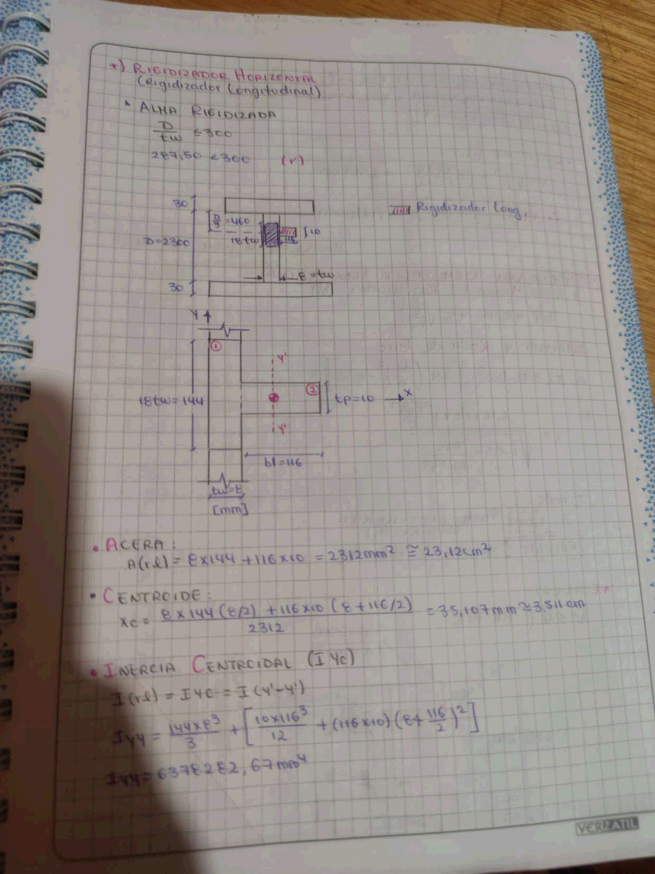 *) RIGIDIZADOR HORIZONTAL
(Rigidizador Longitudinal)
* ALMA RIGIDIZADA
D/tw ≤ 300
287,50 < 300 (✓)
30
D/5 = 460
Rigidizador Long.
10
D=2300
18tw
116
8 = tw
30
Y
1
Y'
2
18tw = 144
tp = 10
X
Y'
bl = 116
tw = 8
[mm]
• ACERA:
A(rl) = 8x144 + 116x10 = 2312 mm² ≅ 23,12 cm²
• CENTROIDE:
Xc = (8x144 (8/2) + 116x10 (8 + 116/2)) / 2312 = 35,107 mm ≅ 3,511 cm
• INERCIA CENTROIDAL (I Yc)
I(rl) = I Yc = I(Y'-Y')
Iyy = 144x8³/3 + [10x116³/12 + (116x10)(8+116/2)²]
Iyy = 6378282,67 mm⁴
VERZATIL